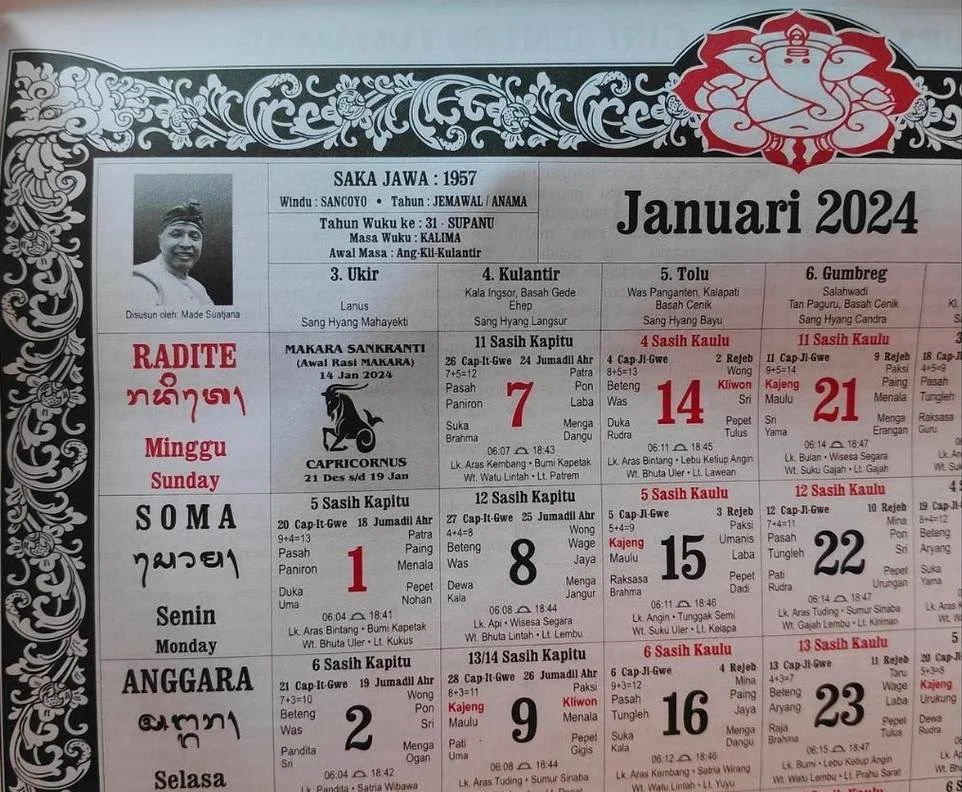 SAKA JAWA : 1957
Windu : SANCOYO • Tahun : JEMAWAL / ANAMA
Tahun Wuku ke : 31 - SUPANU
Masa Wuku : KALIMA
Awal Masa : Ang-Kli-Kulantir
Januari 2024
Disusun oleh: Made Suatjana
3. Ukir
Lanus
Sang Hyang Mahayekti
4. Kulantir
Kala Ingsor, Basah Gede
Ehep
Sang Hyang Langsur
5. Tolu
Was Panganten, Kalapati
Basah Cenik
Sang Hyang Bayu
6. Gumbreg
Salahwadi
Tan Paguru, Basah Cenik
Sang Hyang Candra
RADITE
Minggu
Sunday
MAKARA SANKRANTI
(Awal Rasi MAKARA)
14 Jan 2024
CAPRICORNUS
21 Des s/d 19 Jan
11 Sasih Kapitu
26 Cap-It-Gwe 24 Jumadil Ahr
7+5=12 Patra
Pasah Pon
Paniron 7 Laba
Suka Menga
Brahma Dangu
06:07 18:43
Lk. Aras Kembang • Bumi Kapetak
Wt. Watu Lintah • Lt. Patrem
4 Sasih Kaulu
4 Cap-Ji-Gwe 2 Rejeb
8+5=13 Wong
Beteng Kliwon
Was 14 Sri
Duka Pepet
Rudra Tulus
06:11 18:45
Lk. Aras Bintang • Lebu Ketiup Angin
Wt. Bhuta Uler • Lt. Lawean
11 Sasih Kaulu
11 Cap-Ji-Gwe 9 Rejeb
9+5=14 Paksi
Kajeng Paing
Maulu 21 Menala
Sri Menga
Yama Erangan
06:14 18:47
Lk. Bulan • Wisesa Segara
Wt. Suku Gajah • Lt. Gajah
18 Cap-Ji
4+5=9
Pasah
Tungleh
Raksasa
Guru
SOMA
Senin
Monday
5 Sasih Kapitu
20 Cap-It-Gwe 18 Jumadil Ahr
9+4=13 Patra
Pasah Paing
Paniron 1 Menala
Duka Pepet
Uma Nohan
06:04 18:41
Lk. Aras Bintang • Bumi Kapetak
Wt. Bhuta Uler • Lt. Kukus
12 Sasih Kapitu
27 Cap-It-Gwe 25 Jumadil Ahr
4+4=8 Wong
Beteng Wage
Was 8 Jaya
Dewa Menga
Kala Jangur
06:08 18:44
Lk. Api • Wisesa Segara
Wt. Bhuta Lintah • Lt. Lembu
5 Sasih Kaulu
5 Cap-Ji-Gwe 3 Rejeb
5+4=9 Paksi
Kajeng Umanis
Maulu 15 Laba
Raksasa Pepet
Brahma Dadi
06:11 18:46
Lk. Angin • Tunggak Semi
Wt. Suku Uler • Lt. Kelapa
12 Sasih Kaulu
12 Cap-Ji-Gwe 10 Rejeb
7+4=11 Mina
Pasah Pon
Tungleh 22 Sri
Pati Pepet
Rudra Urungan
06:14 18:47
Lk. Aras Tuding • Sumur Sinaba
Wt. Gajah Lembu • Lt. Kiriman
19 Cap-Ji
8+4=12
Beteng
Aryang
Suka
Yama
ANGGARA
Selasa
6 Sasih Kapitu
21 Cap-It-Gwe 19 Jumadil Ahr
7+3=10 Wong
Beteng Pon
Was 2 Sri
Pandita Menga
Sri Ogan
06:04 18:42
Lk. Pandita • Satria Wibawa
13/14 Sasih Kapitu
28 Cap-It-Gwe 26 Jumadil Ahr
8+3=11 Paksi
Kajeng Kliwon
Maulu 9 Menala
Pati Pepet
Uma Gigis
06:08 18:44
Lk. Aras Tuding • Sumur Sinaba
6 Sasih Kaulu
6 Cap-Ji-Gwe 4 Rejeb
9+3=12 Mina
Pasah Paing
Tungleh 16 Jaya
Suka Menga
Kala Dangu
06:12 18:46
Lk. Aras Kembang • Satria Wirang
Wt. Watu Lintah • Lt. Yuyu
13 Sasih Kaulu
13 Cap-Ji-Gwe 11 Rejeb
4+3=7 Taru
Beteng Wage
Aryang 23 Laba
Raja Pepet
Brahma Tulus
06:15 18:47
Lk. Bumi • Lebu Ketiup Angin
Wt. Watu Lembu • Lt. Prahu Sarat
20 Cap-Ji
5+3=8
Kajeng
Urukung
Dewa
Rudra